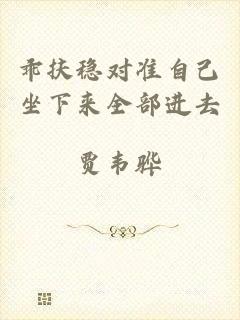 乖扶稳对准自己
坐下来全部进去
贾韦骅